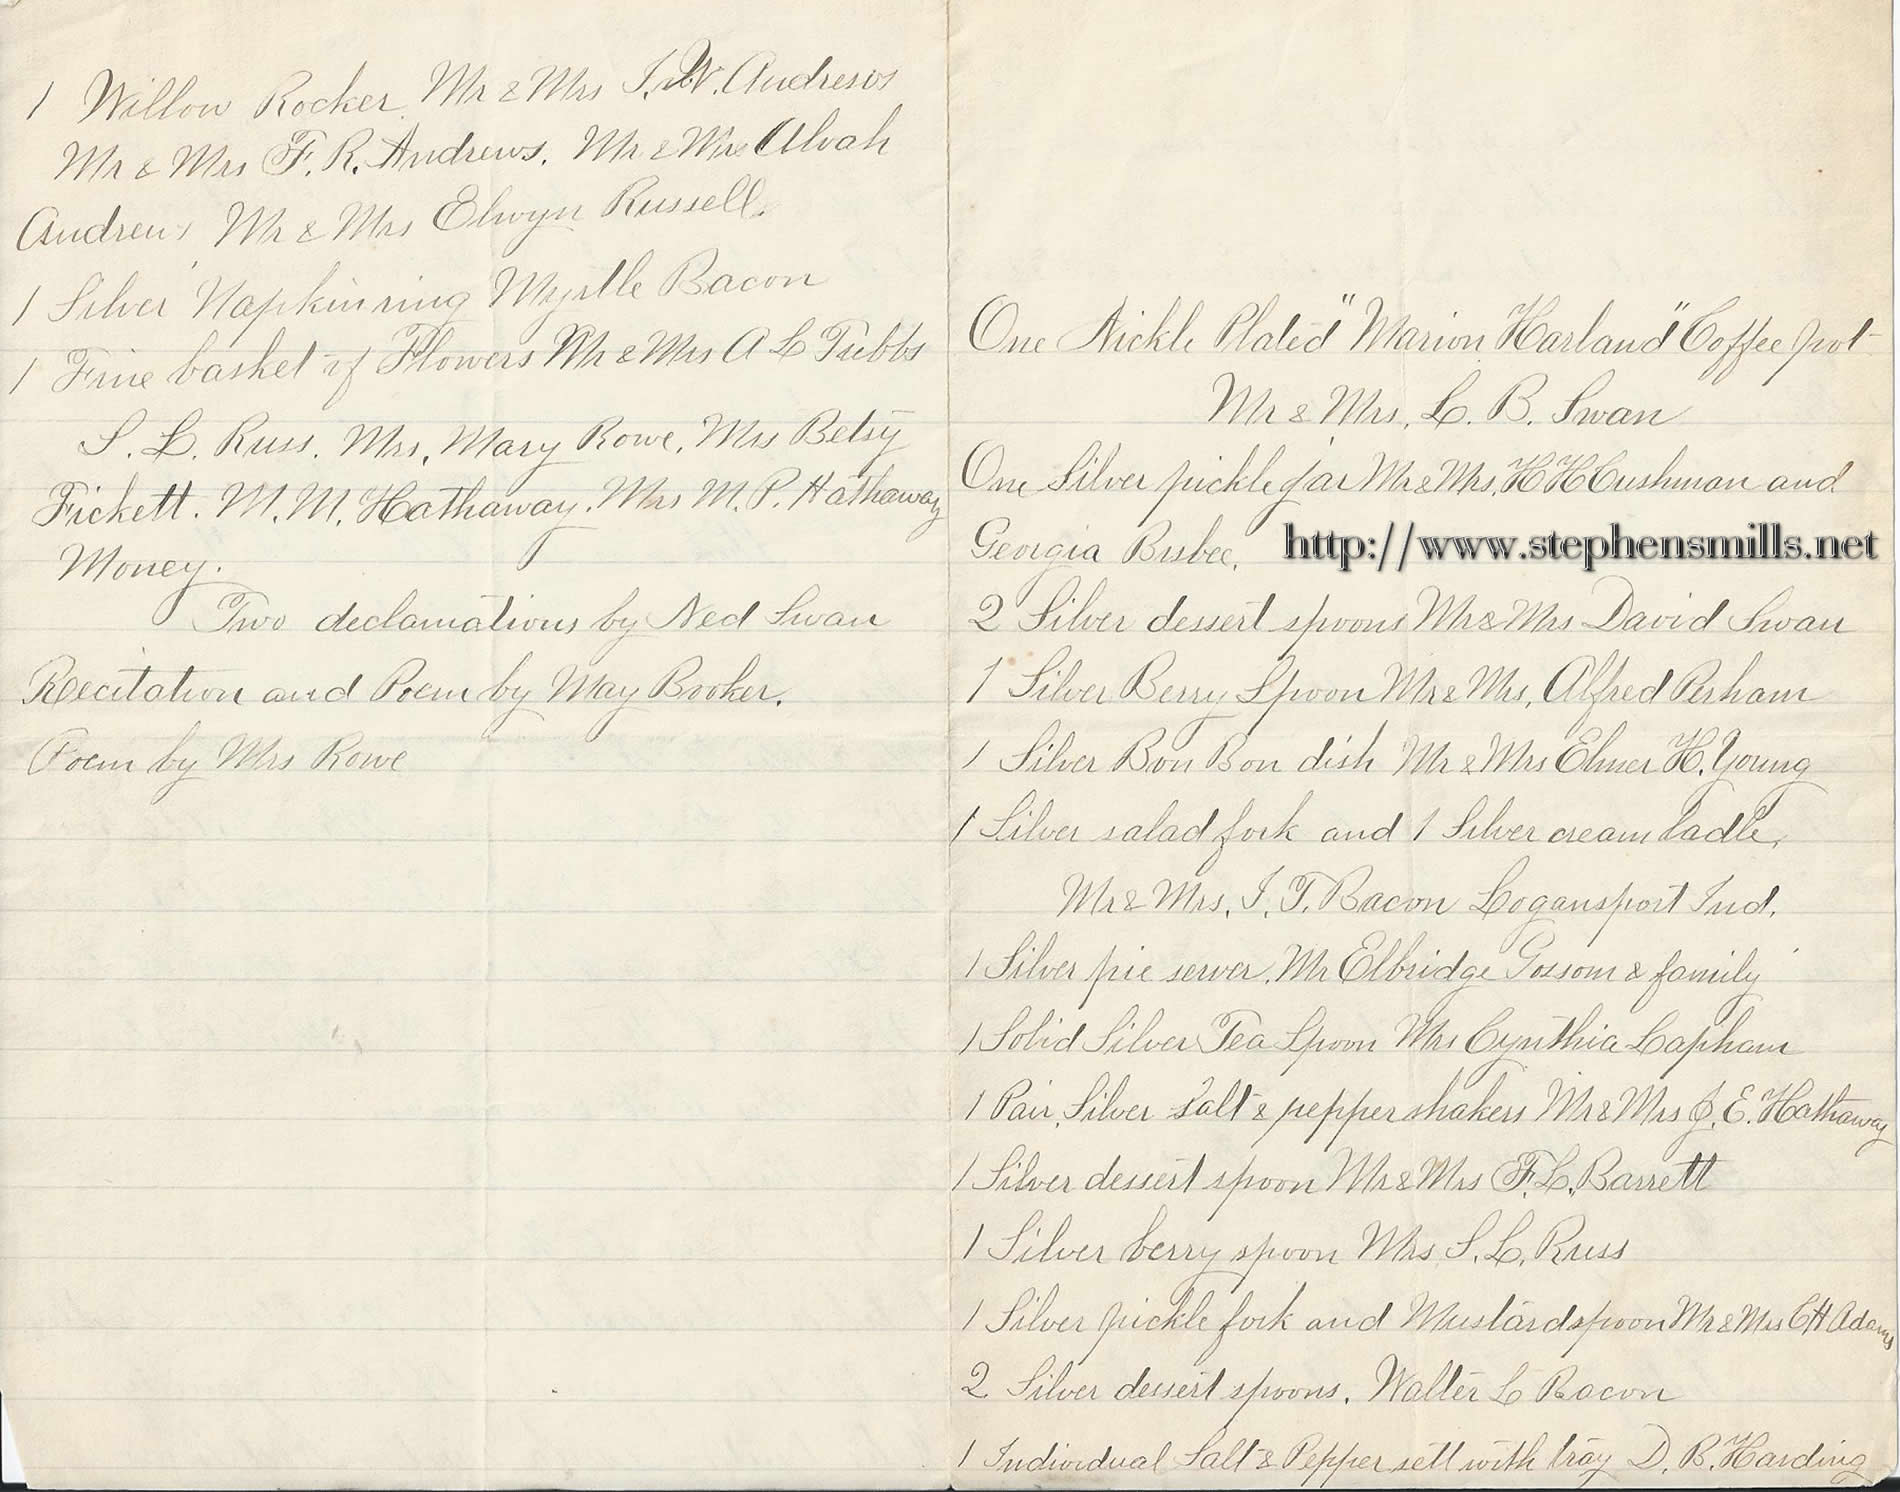 1 Willow Rocker. Mr & Mrs J. W. Andrews
Mr & Mrs F. R. Andrews. Mr & Mrs Alvah
Andrews Mr & Mrs Elwyn Russell.
1 Silver Napkin ring Myrtle Bacon
1 Fine basket of Flowers Mr & Mrs A L Tubbs
S. L. Russ. Mrs. Mary Rowe. Mrs Betsy
Fickett. M. M. Hathaway. Mrs M. P. Hathaway
Money.
Two declamations by Ned Swan
Recitation and Poem by May Booker.
Poem by Mrs Rowe
One Nickle Plated "Marion Harland" Coffee pot
Mr & Mrs. L. B. Swan
One Silver pickle jar Mr & Mrs. H H Cushman and
Georgia Bisbee.
http://www.stephensmills.net
2 Silver dessert spoons Mr & Mrs David Swan
1 Silver Berry Spoon Mr & Mrs. Alfred Perham
1 Silver Bon Bon dish Mr & Mrs Elmer H. Young
1 Silver salad fork and 1 Silver cream ladle,
Mr & Mrs. I. T. Bacon Logansport Ind.
1 Silver pie server. Mr Elbridge Gossom & family
1 Solid Silver Tea Spoon Mrs Cynthia Lapham
1 Pair, Silver Salt & pepper shakers Mr & Mrs J. E. Hathaway
1 Silver dessert spoon Mr & Mrs F. L. Barrett
1 Silver berry spoon Mrs S. L. Russ
1 Silver pickle fork and Mustard spoon Mr & Mrs C H Adams
2 Silver dessert spoons. Walter L Bacon
1 Individual Salt & Pepper sett with tray D. B. Harding